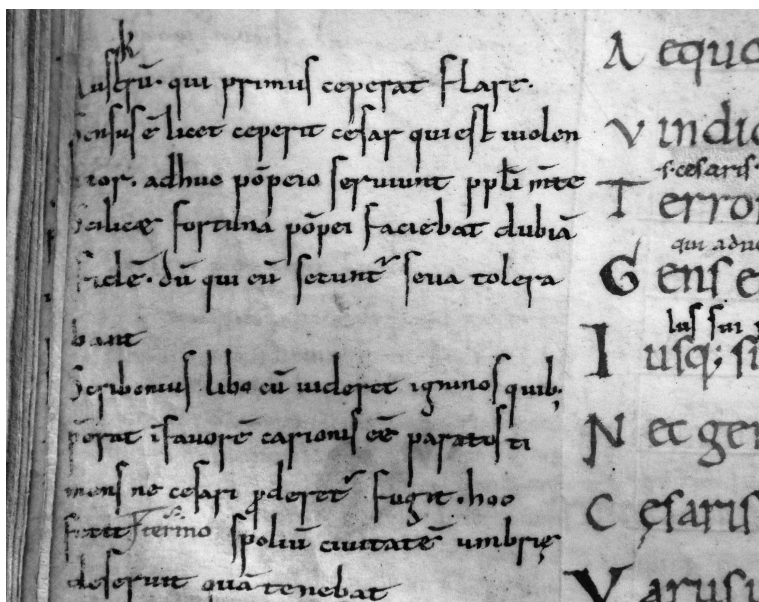 k
Austrū· qui primus ceperat flare·
Sensus ē licet ceperit cesar qui est uiolen
tior· adhuc pōpeio seruiunt ppli m̄te
Scilicę fortuna pōpei faciebat dubiā
fidē· dū qui eū seꞇunt᷑ seua tolera
bant
Scribonius libo cū uideret iguinos quib;
perat ī fauorē carionis eē paratos ti
mens ne cesari ꝓderet᷑ fugit· hoc
spoliū ciuitatē umbrię
deserunt quā tenebat
Aequo
Vindic
s· cesaris
Terror
qui adu
Gens e
lus sui
Iusq; si
Nec ger
Cęsaris
Varusu